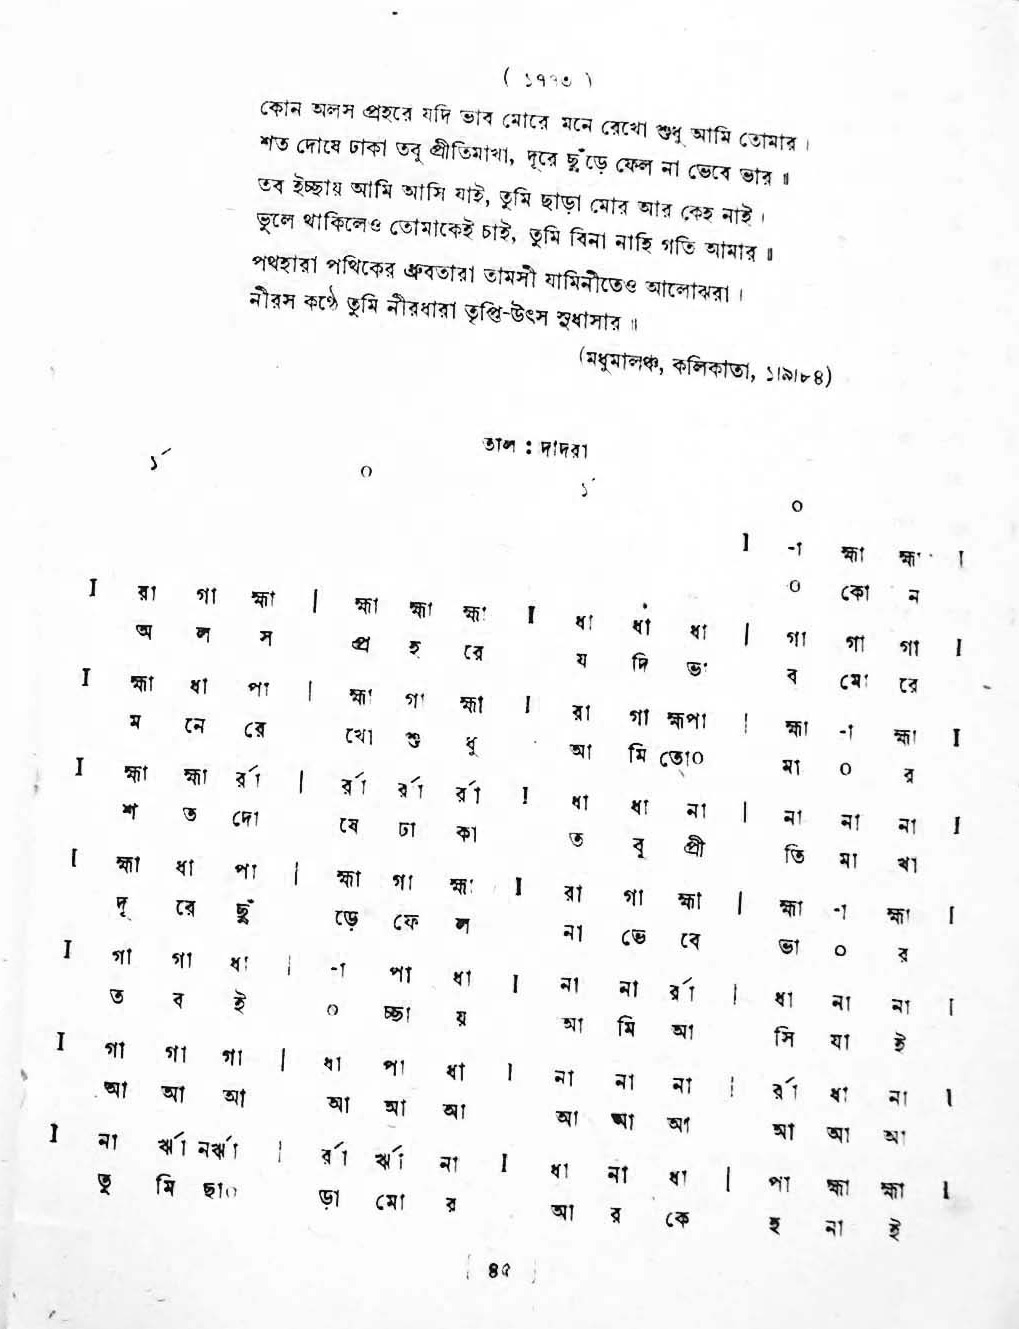 ( ১৭৭৩ )
কোন অলস প্রহরে যদি ভাব মোরে মনে রেখো শুধু আমি তোমার ।
শত দোষে ঢাকা তবু প্রীতিমাখা, দূরে ছুঁড়ে ফেল না ভেবে ভার ॥
তব ইচ্ছায় আমি আসি যাই, তুমি ছাড়া মোর আর কেহ নাই ।
ভুলে থাকিলেও তোমাকেই চাই, তুমি বিনা নাহি গতি আমার ॥
পথহারা পথিকের ধ্রুবতারা তামসী যামিনীতেও আলোঝরা ।
নীরস কণ্ঠে তুমি নীরধারা তৃপ্তি-উৎস সুধাসার ॥
(মধুমালঞ্চ, কলিকাতা, ১।৯।৮৪)
তাল : দাদরা
১´ ০ ১´ ০
I -া হ্মা হ্মা I
০ কো ন
I রা গা হ্মা | হ্মা হ্মা হ্মা I ধা ধা ধা | গা গা গা I
অ ল স প্র হ রে য দি ভা ব মো রে
I হ্মা ধা পা | হ্মা গা হ্মা I রা গা হ্মপা | হ্মা -া হ্মা I
ম নে রে খো শু ধু আ মি তো০ মা ০ র
I হ্মা হ্মা র্রা | র্রা র্রা র্রা I ধা ধা না | না না না I
শ ত দো ষে ঢা কা ত বু প্রী তি মা খা
I হ্মা ধা পা | হ্মা গা হ্মা I রা গা হ্মা | হ্মা -া হ্মা I
দূ রে ছুঁ ড়ে ফে ল না ভে বে ভা ০ র
I গা গা ধা | -া পা ধা I না না র্রা | ধা না না I
ত ব ই ০ চ্ছা য় আ মি আ সি যা ই
I গা গা গা | ধা পা ধা I না না না | র্রা ধা না I
আ আ আ আ আ আ আ আ আ আ আ আ
I না র্ঋা নর্ঋা | র্রা র্ঋা না I ধা না ধা | পা হ্মা হ্মা I
তু মি ছা০ ড়া মো র আ র কে হ না ই
[ ৪৫ ]